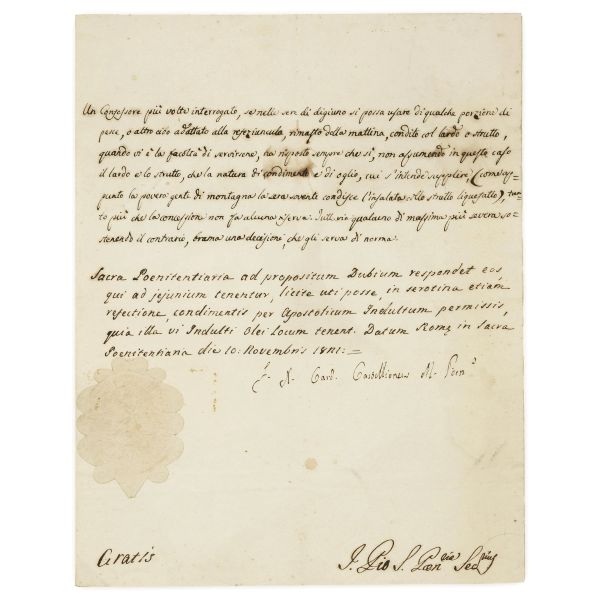 Un Confessore più volte interrogato, se nelle sere di digiuno si possa usare di qualche porzione di
pesce, o altro cibo adattato alla refeziuncula, rimasto della mattina, condito col lardo o strutto,
quando vi è la facoltà di servirsene, ha risposto sempre che si, non assumendo in questo caso
il lardo e lo strutto, che la natura di condimento e di oglio, cui s'intende supplire (come ap-
punto la povera gente di montagna la sera sovente condisce l'insalata collo strutto liquefatto), tan-
to più che la concessione non fa alcuna riserva. Tuttavia qualcuno di massima più severa so-
stenendo il contrario, brama una decisione, che gli serva di norma.
Sacra Poenitentiaria ad propositum Dubium respondet eos,
qui ad jejunium tenentur, licite uti posse, in serotina etiam
refectione, condimentis per Apostolicum Indultum permissis,
quia illa vi Indulti Olei locum tenent. Datum Romę in Sacra
Poenitentiaria die 10: Novembris 1821:=
F. X. Card. Castillioneus M. Poen.s
Gratis
Pio S. Poen.rię Sec.rius